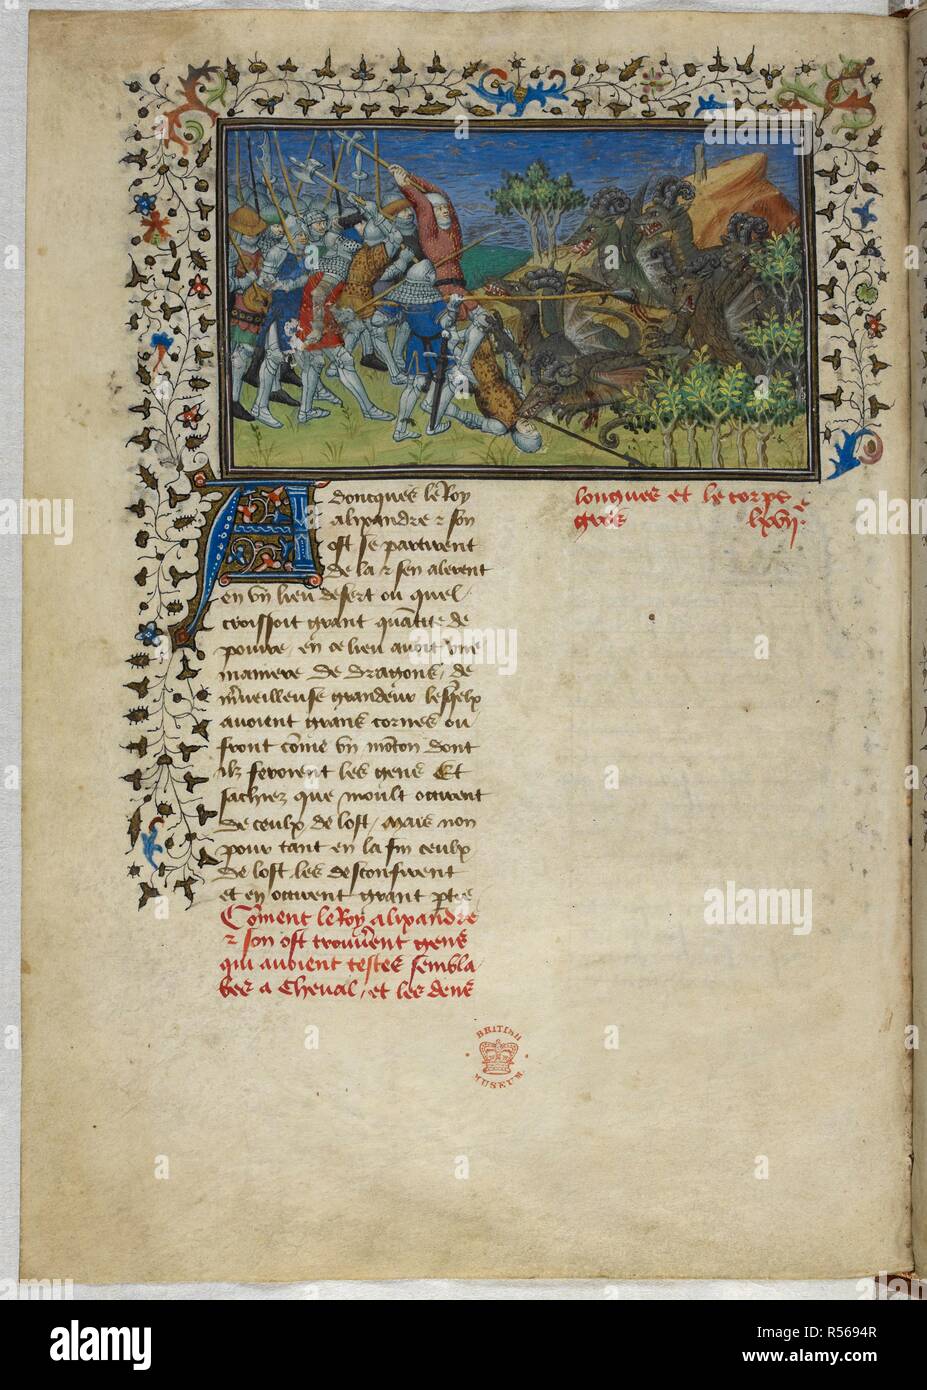 Adoncques le Roy
alixandre ⁊ son
ost se partirent
de la ⁊ sen alerent
en vn lieu desert ou quel
croissoit grant quātite de
poiure, en ce lieu auoit vne
maniere de dragons, de
m̄ueilleuse grandeur lesq̄elx
auoient grans cornes ou
front cōme vn mōton dont
ilz feroient les gens Et
sachiez que moult occirent
de ceulx de lost, mais non
pour tant en la fin ceulx
de lost les desconfirent
et en occirent grant p̄tie
Cōment le Roy alixandre
⁊ son ost trouuerent gens
qui auoient testes sembla
bles a cheual, et les dens
longues et le corps
grãs lxvijᵉ.
BRITISH MUSEUM
alamy
Image ID: R5694R
www.alamy.com